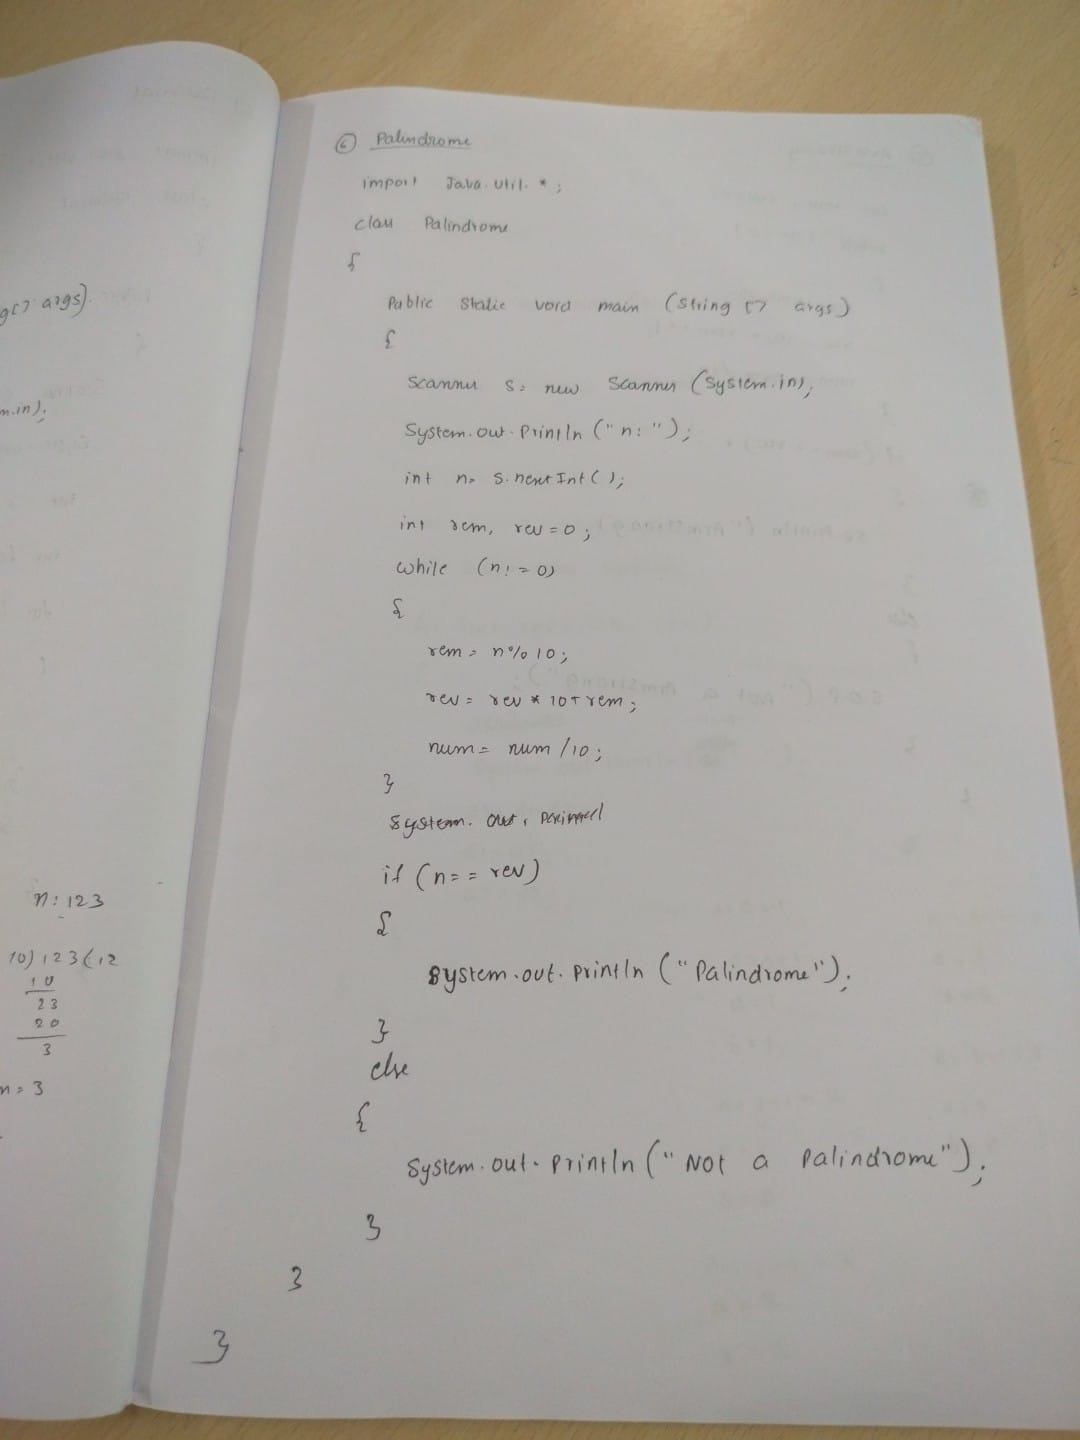 g[] args).
m.in);
n: 123
10) 123 ( 12
10
23
20
3
m = 3
6 Palindrome
import Java.util.*;
class Palindrome
{
Public Static void main (String [] args)
{
Scanner s= new Scanner (System.in);
System.out.Println ("n:");
int n= s.nextInt();
int rem, rev=0;
while (n!=0)
{
rem = n%10;
rev= rev * 10+rem;
num= num/10;
}
System. out.
if (n== rev)
{
System.out.println ("Palindrome");
}
else
{
System.out.println ("Not a Palindrome");
}
}
}